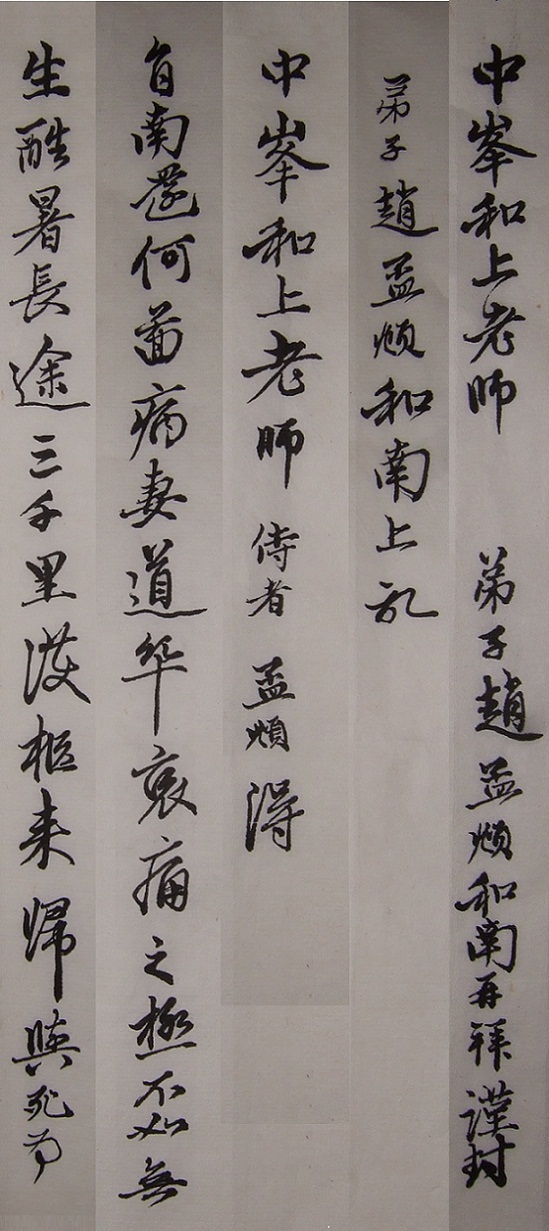 中峯和上老師 弟子趙孟頫和南再拜謹封
弟子趙孟頫和南上記
中峯和上老師侍者 孟頫得
旨南還何圖病妻道卒哀痛之極不如無
生酷暑長途三千里護柩来歸與死為